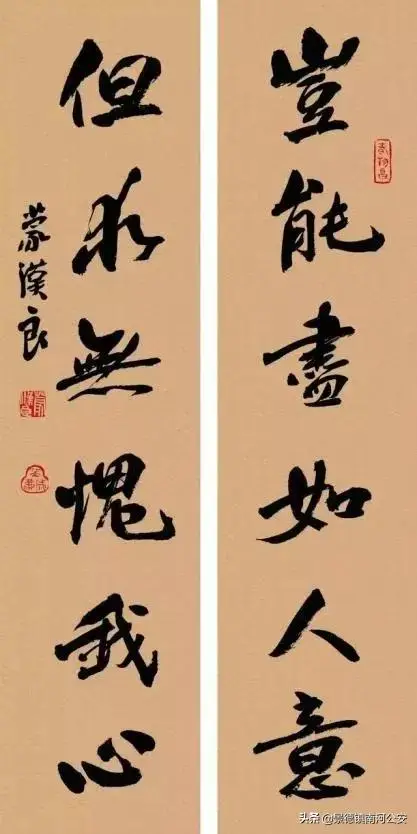 豈能盡如人意
但求無愧我心
蒙漢良
头条 @景德镇南柯公安